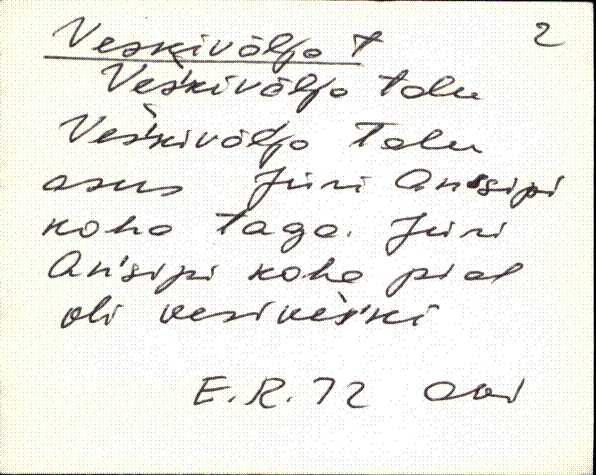 Veskivälja T 2
Veśkivälja talu
Veśkivälja Talu
asus Jüri Ańsipi
koha taga. Jüri
Ańsipi koha pial
oli vesiveśki
E.R. 72